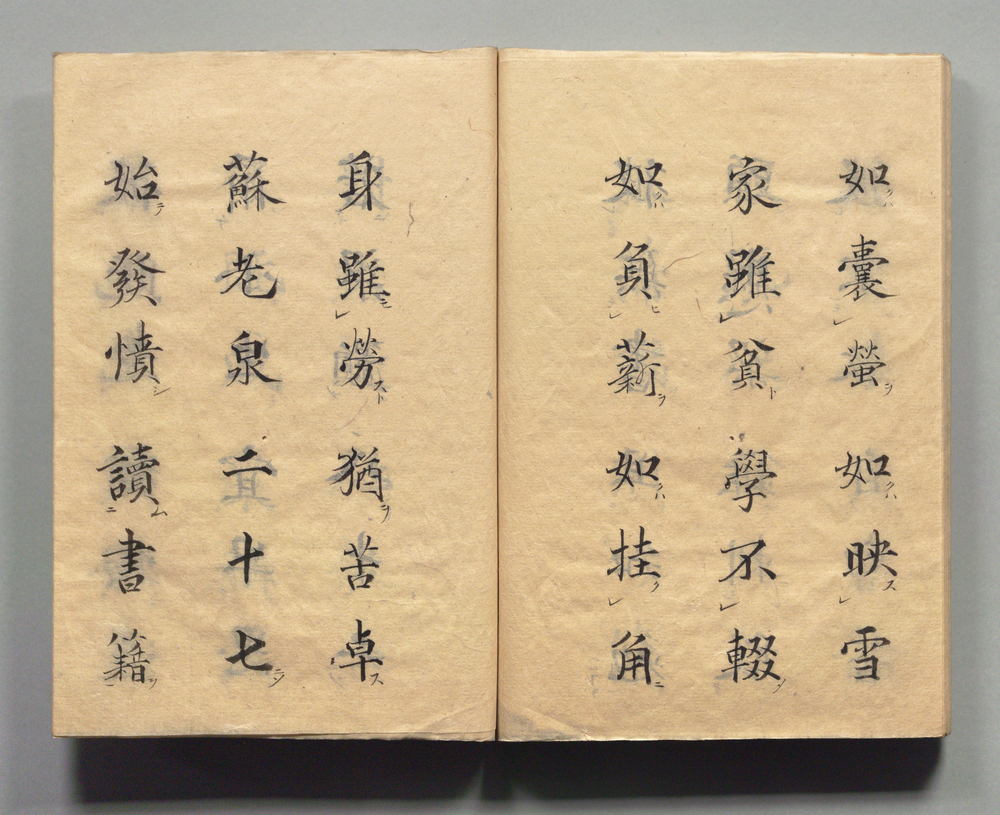 如囊螢 如映雪
家雖貧 學不輟
如負薪 如挂角
身雖勞 猶苦卓
蘇老泉 二十七
始發憤 讀書籍